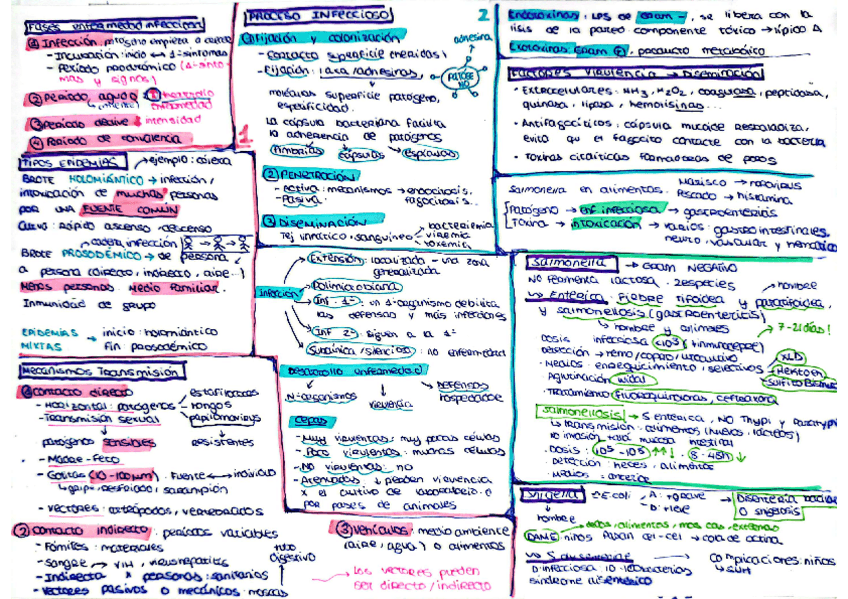 Fases enfermedad infecciosa
① Infección: mismo empieza a
- Incubación: inicio ↔ 1º síntomas
- Período prodrómico (1º sínto-
mas y signos)
② Período agudo
enfermedad
③ Período declive ↓ intensidad
④ Período de convalencia
1
TIPOS EPIDEMIAS → ejemplo: cólera
BROTE HOLOMIÁNTICO → infección,
intoxicación de muchas personas
POR UNA FUENTE COMÚN
Curva: rápido ascenso-descenso
BROTE PROSODÉMICO → de persona
a persona (directo, indirecto, aire...)
Menos personas. Medio familiar.
Inmunidad de grupo
EPIDEMIAS → inicio: holomiántico
MIXTAS Fin prosodémico
Mecanismos Transmisión
① Contacto directo
- Horizontal: patógenos
- Transmisión sexual
estafilococos
hongos
papilomavirus
patógenos sensibles resistentes
- Madre-feto
- Gotitas (10-100µm). Fuente ↔ individuo
↳ gripe, resfriado, sarampión
- Vectores: artrópodos, vertebrados
② Contacto indirecto: períodos variables
- Fómites: materiales
- Sangre → VIH, virus hepatitis
- Indirecta x personas: sanitarios
- Vectores pasivos o mecánicos: moscas
tubo
digestivo
PROCESO INFECCIOSO
2
① Fijación y colonización
- Contacto superficie
- Fijación: laxa/adhesinas
adhesina
PATÓGENO
moléculas superficie patógeno,
especificidad.
La cápsula bacteriana facilita
la adherencia de patógenos
fimbrias cápsulas espículas
② PENETRACIÓN
- Activa: mecanismos → endocitosis,
- Pasiva. fagocitosis...
③ DISEMINACIÓN
Tej linfático, sanguíneo
bacteriemia
viremia
toxemia
Infección
Extensión: localizada - una zona
generalizada
Polimicrobiana
Inf. 1ª: un 1º organismo debilita
las defensas y más infecciones
Inf 2ª: Siguen a la 1ª
Subclínica/silenciosa: no enfermedad
Desarrollo enfermedad
Nº organismos
virulencia
Defensas
hospedador
Cepas
- Muy virulentas: muy pocas células
- Poco virulentas: muchas células
- No virulentas: no
- Atenuadas: ↓ pierden virulencia
x el cultivo de laboratorio o
por pases de animales
③ Vehículos: medio ambiente
(aire, agua) o alimentos
Los vectores pueden
ser directo/indirecto
Endotoxinas: LPS de Gram -, se libera con la
lisis de la pared componente tóxico → lípido A
Exotoxinas: Gram +, producto metabólico
FACTORES VIRULENCIA → Diseminación
• Extracelulares: NH₃, H₂O₂, coagulasa, peptidasa,
quinasa, lipasa, hemolisinas...
• Antifagocíticos: cápsula mucoide resbaladiza,
evita que el fagocito contacte con la bacteria
• Toxinas citolíticas formadoras de poros
Salmonella en alimentos. Marisco → norovirus
Pescado → histamina
Patógeno → enf infecciosa → gastroenteritis
Toxina → intoxicación → varios: gastrointestinales,
neuro, vascular y
Salmonella → Gram NEGATIVO
NO fermenta lactosa. 2 especies → hombre
↳ Enterica: Fiebre tifoidea y paratifoidea,
y salmonellosis (gastroenteritis)
↳ hombre y animales → 7-21 días!
Dosis infecciosa <10³ (+inmunodepre)
Detección → hemo/copro/urocultivo XLD
• Medios: enriquecimiento, selectivos Hektoen
Sulfito Bismuto
• Aglutinación Widal
• Tratamiento: fluoroquinolonas, ceftriaxona
Salmonellosis → S enterica, NO Thypi y Paratyphi
↳ transmisión: alimentos (huevos, lácteos)
no invasión total mucosa intestinal
• Dosis: 10⁵-10⁸ ↑↑↓. 8-48h ↓
Detección: heces, alimentos
Shigella ≈ E.coli A: +grave
D: +leve
→ Disentería bacilar
O shigelosis
↳ hombre
→ dedos/alimentos/moscas/excretas
niños cel-cel → cola de actina.
D. infecciosa 10-100 bacterias
síndrome disentérico
complicaciones: niños